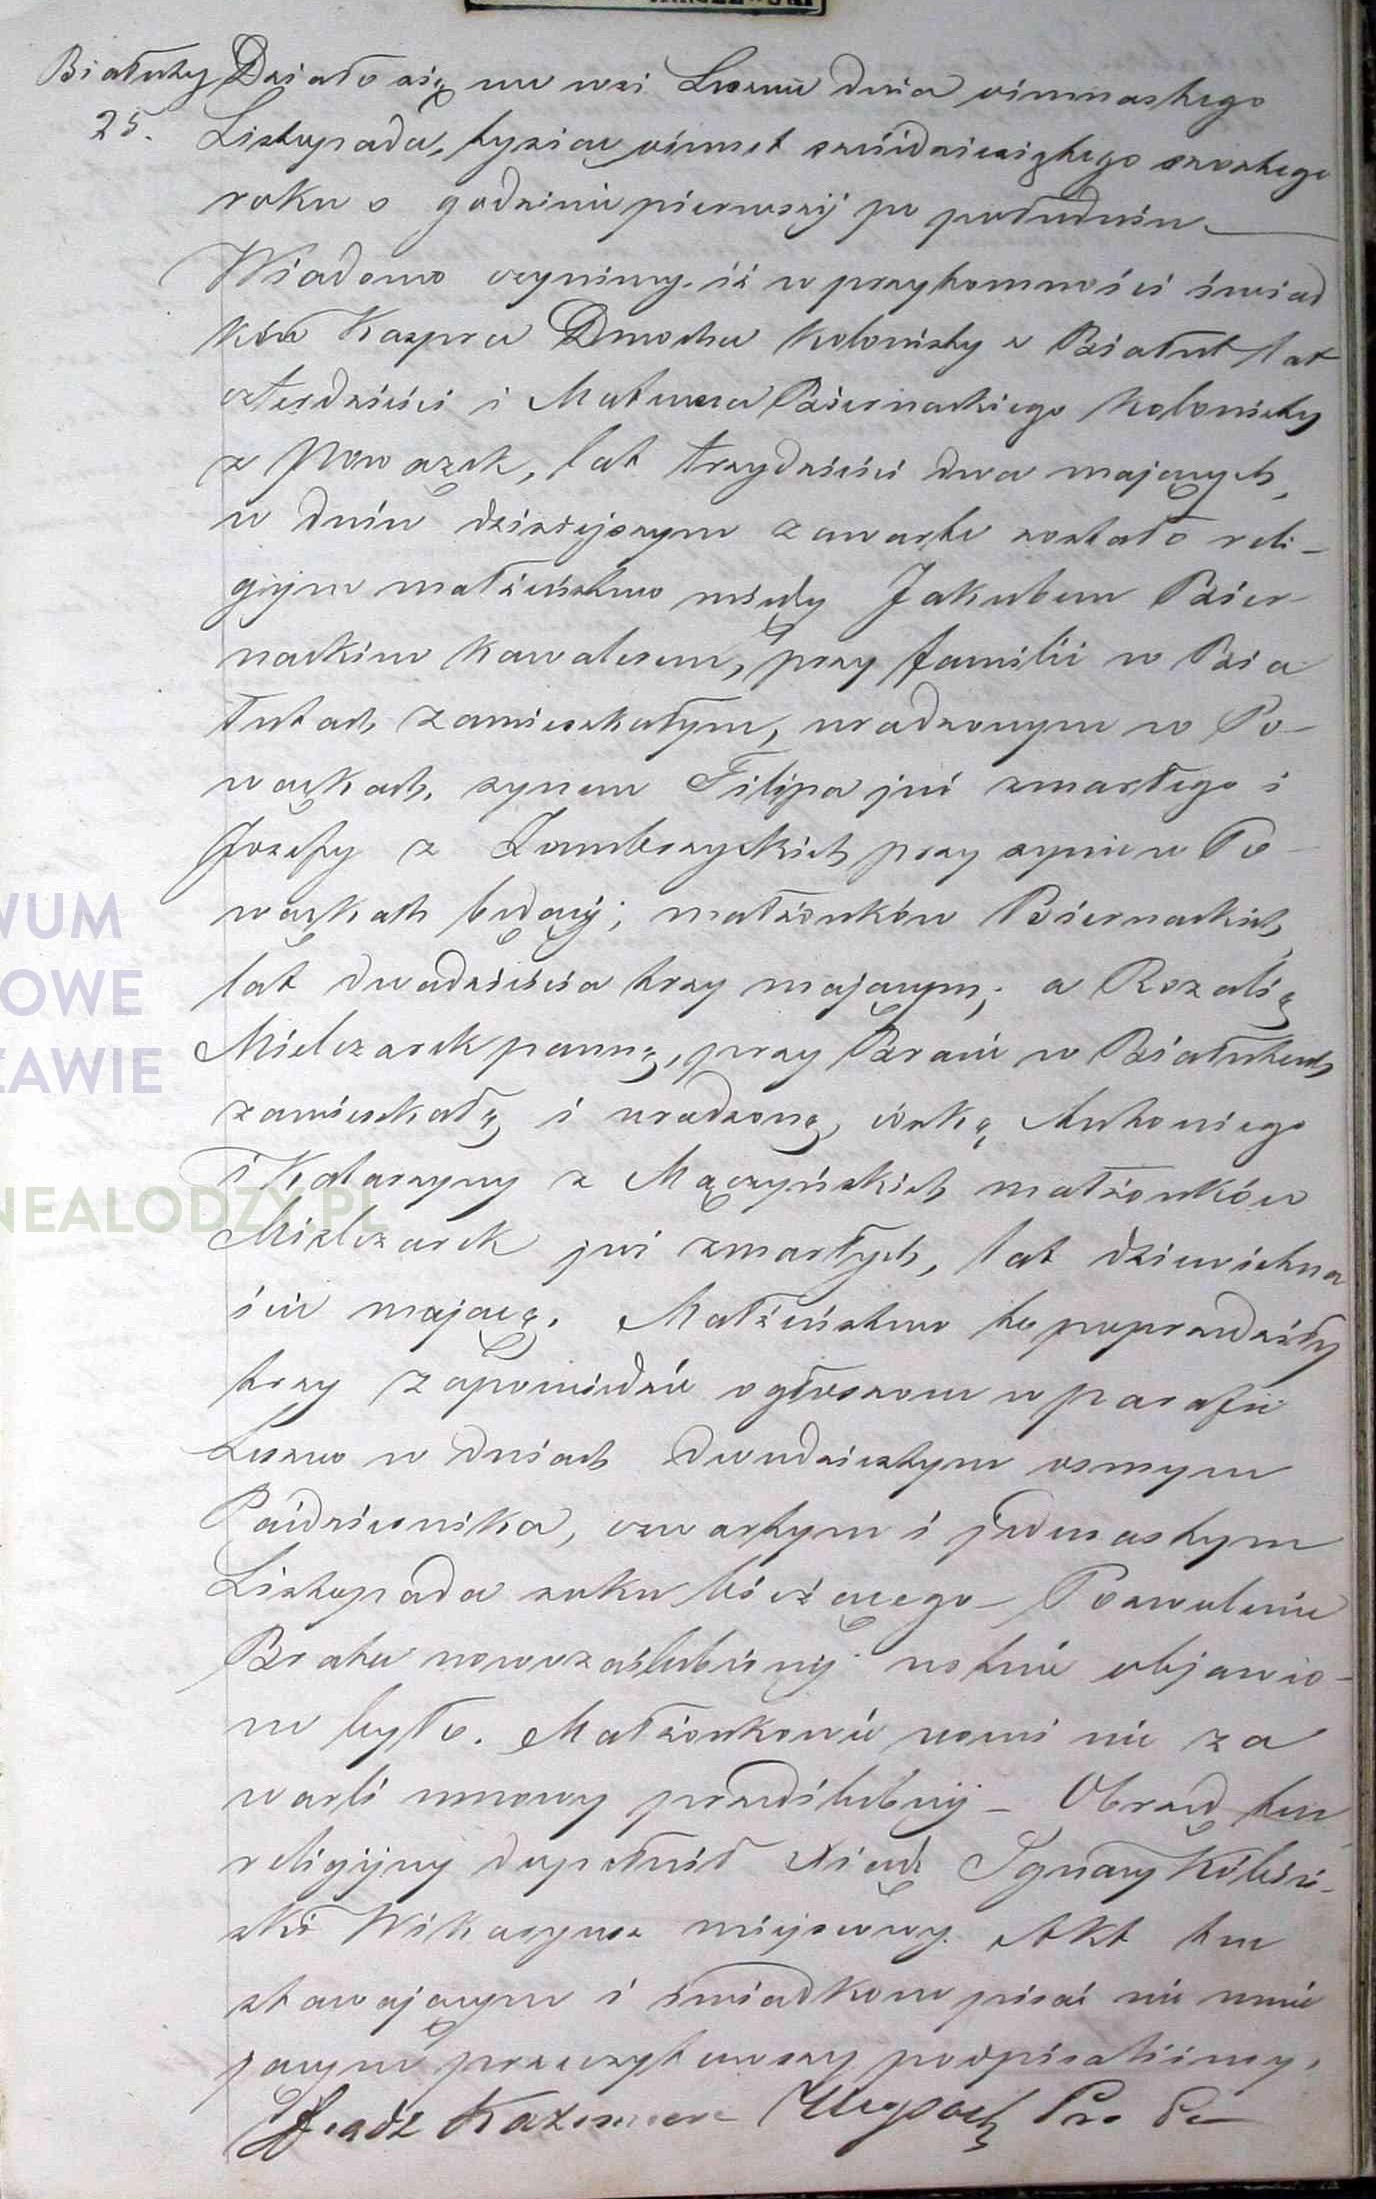 Białuty Działo się we wsi Leszno dnia ośmnastego
25. Listopada, tysiąc ośmset sześćdziesiątego szóstego
roku o godzinie pierwszej po południu
Wiadomo czynimy, iż w przytomności świad
ków Kaspra Dmocha kolonisty z Białut lat
czterdzieści i Mateusza Biernackiego kolonisty
z Powązek, lat trzydzieści dwa mających,
w dniu dzisiejszym zawarte zostało reli-
gijne małżeństwo między Jakubem Bier-
nackim kawalerem, przy familii w Bia
łutach zamieszkałym, urodzonym w Po-
wązkach, synem Filipa już zmarłego i
Józefy z Zembrzyckich przy synie w Po-
wązkach będącej; małżonków Biernackich,
lat dwadzieścia trzy mającym; a Rozalią
Mielczarek panną, przy Bracie w Białutach
zamieszkałą i urodzoną, córką Antoniego
i Katarzyny z Mączyńskich małżonków
Mielczarek już zmarłych, lat dziewietna
ście mającą. Małżeństwo to poprzedziły
trzy zapowiedzie ogłoszone w parafii
Leszno w dniach dwudziestym osmym
Października, czwartym i jedenastym
Listopada roku bieżącego – Pozwolenie
Brata nowozaślubionej ustnie objawio-
ne było. Małżonkowie nowi nie za
warli umowy przedślubnej – Obrzęd ten
religijny dopełnił Xiądz Ignacy
Wikaryusz miejscowy. Akt ten
stawającym i świadkom pisać nie umie
jącym przeczytawszy podpisaliśmy.
Xiądz Kazimierz